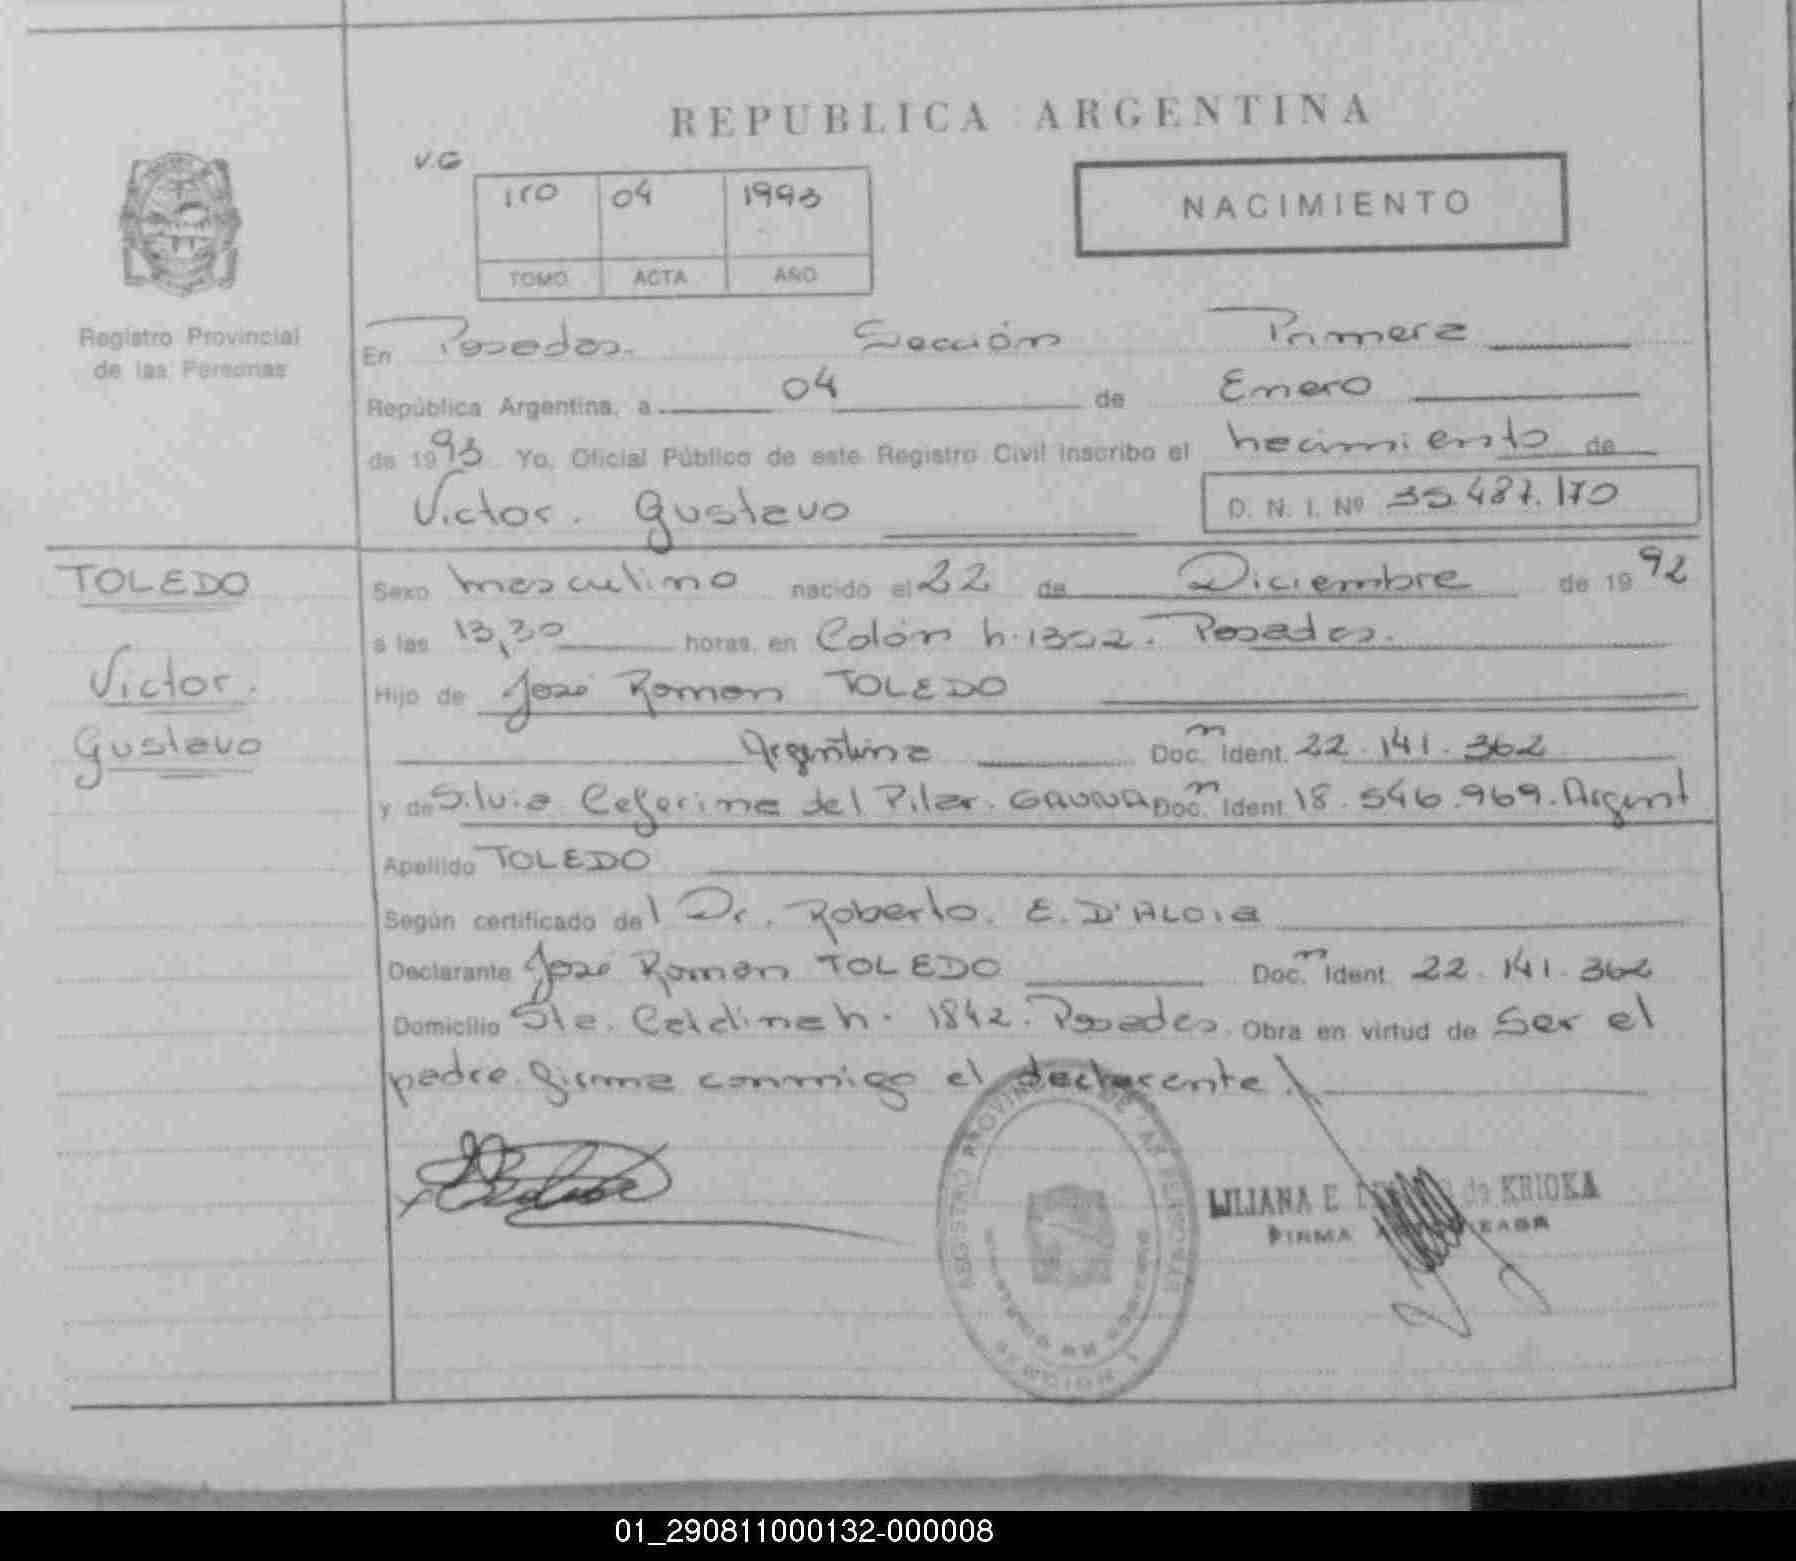 REPUBLICA ARGENTINA
V.G
1ro 04 1993
TOMO ACTA AÑO
NACIMIENTO
Registro Provincial
de las Personas
En Posadas. Sección Primera
República Argentina, a 04 de Enero
de 1993 Yo, Oficial Público de este Registro Civil inscribo el nacimiento de
Victor. Gustavo D. N. I. Nº 35.487.170
TOLEDO
Victor.
Gustavo
Sexo masculino nacido el 22 de Diciembre de 1992
a las 13,30 horas, en Colón n. 1302. Posadas.
Hijo de José Ramon TOLEDO
Argentina Doc. n Ident. 22.141.362
y de Silvia Ceferina del Pilar. GAUNA Doc. n Ident. 18.546.969. Argent
Apellido TOLEDO
Según certificado del Dr. Roberto. E. D'ALOIA
Declarante José Ramon TOLEDO Doc. n Ident. 22.141.362
Domicilio Sta. Catalina n. 1842. Posadas. Obra en virtud de ser el
padre. firma conmigo el declarante.
REGISTRO PROVINCIAL DE LAS PERSONAS
SECCION 1
LILIANA E de KRIOKA
FIRMA
01_290811000132-000008